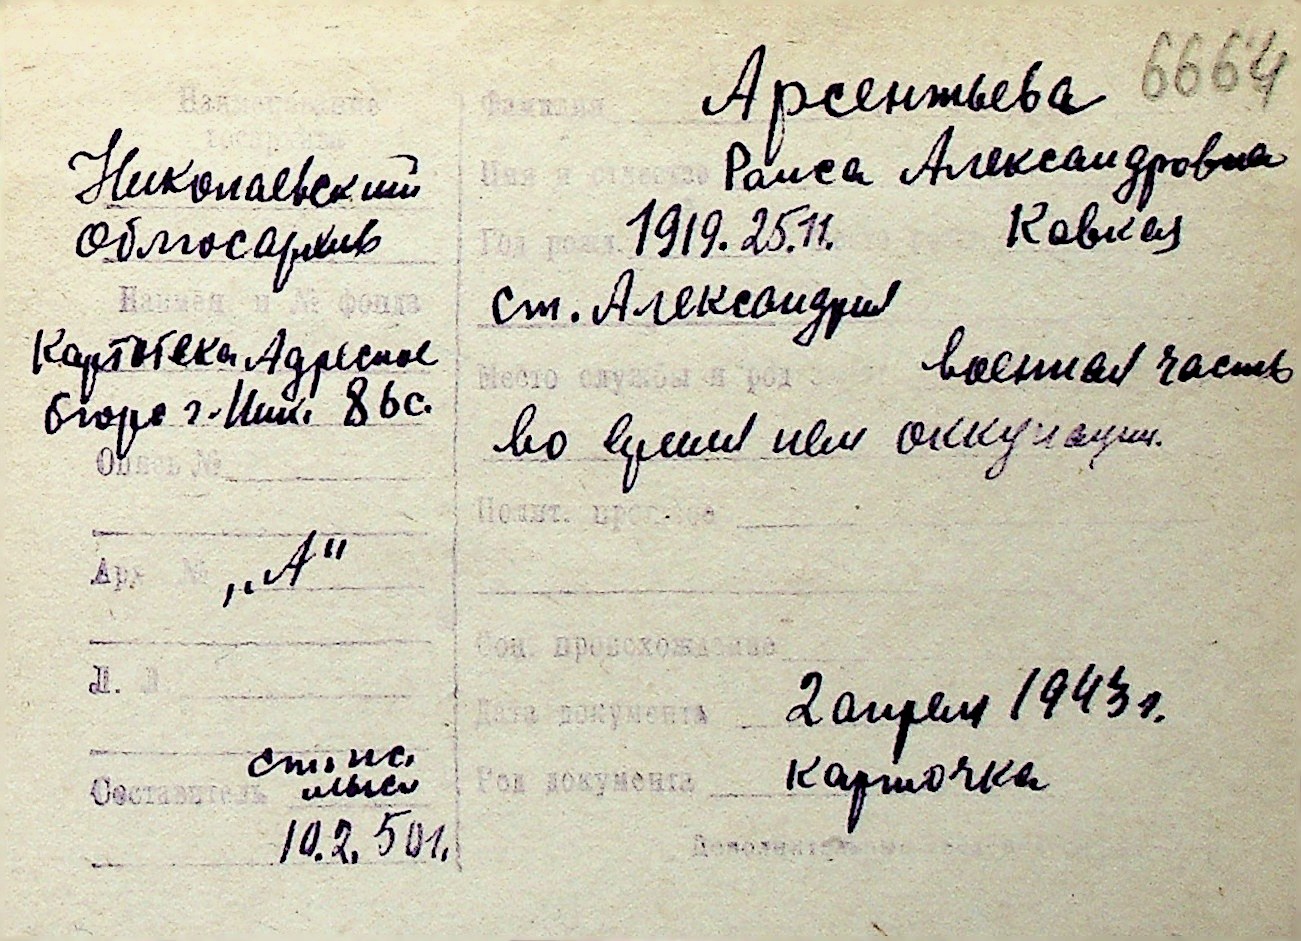 6664
Наименование
госархива
Николаевский
Облгосархив
Наимен. и № фонда
Картотека Адресное
бюро г. Ник. 86с.
Опись №
Арх. №
„А"
Л. Л.
Составитель
ст. нс.
10.2.50г.
Фамилия Арсентьева
Имя и отчество Раиса Александровна
Год рожд. 1919.25.11. Кавказ
ст. Александрия
Место службы и род военная часть
во время нем оккупации.
Полит. прошлое
Соц. происхождение
Дата документа 2 апреля 1943 г.
Род документа карточка